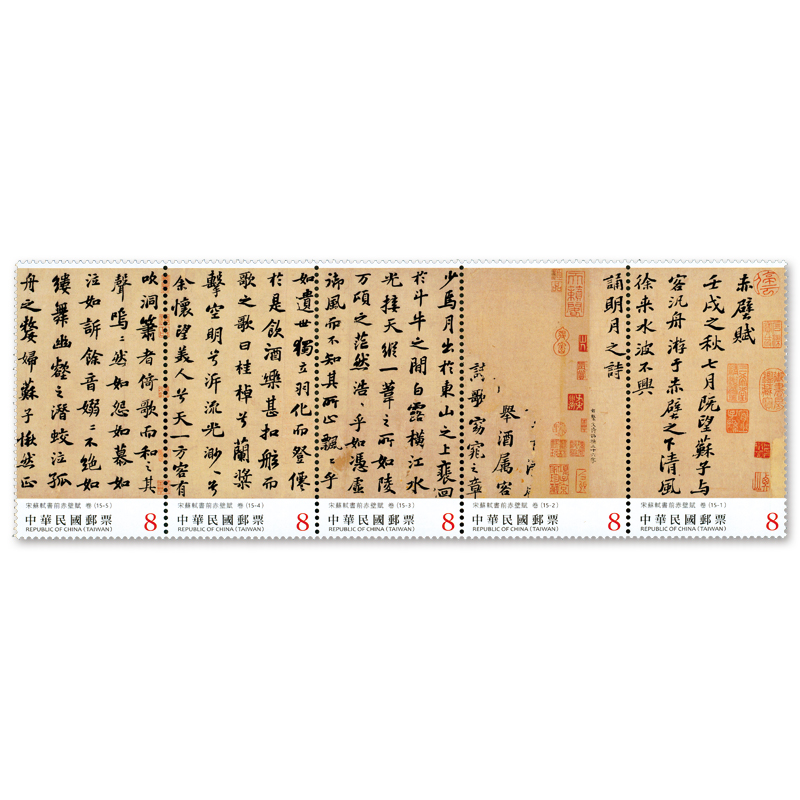 赤壁賦
壬戌之秋七月既望蘇子与
客汎舟游于赤壁之下清風
徐来水波不興
宋蘇軾書前赤壁賦 卷 (15-1)
中華民國郵票
REPUBLIC OF CHINA (TAIWAN)
8
誦明月之詩
舉酒属客
歌窈窕之章
宋蘇軾書前赤壁賦 卷 (15-2)
中華民國郵票
REPUBLIC OF CHINA (TAIWAN)
8
少焉月出於東山之上裵回
於斗牛之間白露橫江水
光接天縱一葦之所如陵
万頃之茫然浩〻乎如馮虛
御風而不知其所止飄〻乎
宋蘇軾書前赤壁賦 卷 (15-3)
中華民國郵票
REPUBLIC OF CHINA (TAIWAN)
8
如遺世獨立羽化而登僊
於是飲酒樂甚扣舷而
歌之歌曰桂棹兮蘭槳
擊空明兮泝流光渺〻兮
余懷望美人兮天一方客有
宋蘇軾書前赤壁賦 卷 (15-4)
中華民國郵票
REPUBLIC OF CHINA (TAIWAN)
8
吹洞簫者倚歌而和之其
聲嗚〻然如怨如慕如
泣如訴餘音嫋〻不絕如
縷舞幽壑之潛蛟泣孤
舟之嫠婦蘇子愀然正
宋蘇軾書前赤壁賦 卷 (15-5)
中華民國郵票
REPUBLIC OF CHINA (TAIWAN)
8